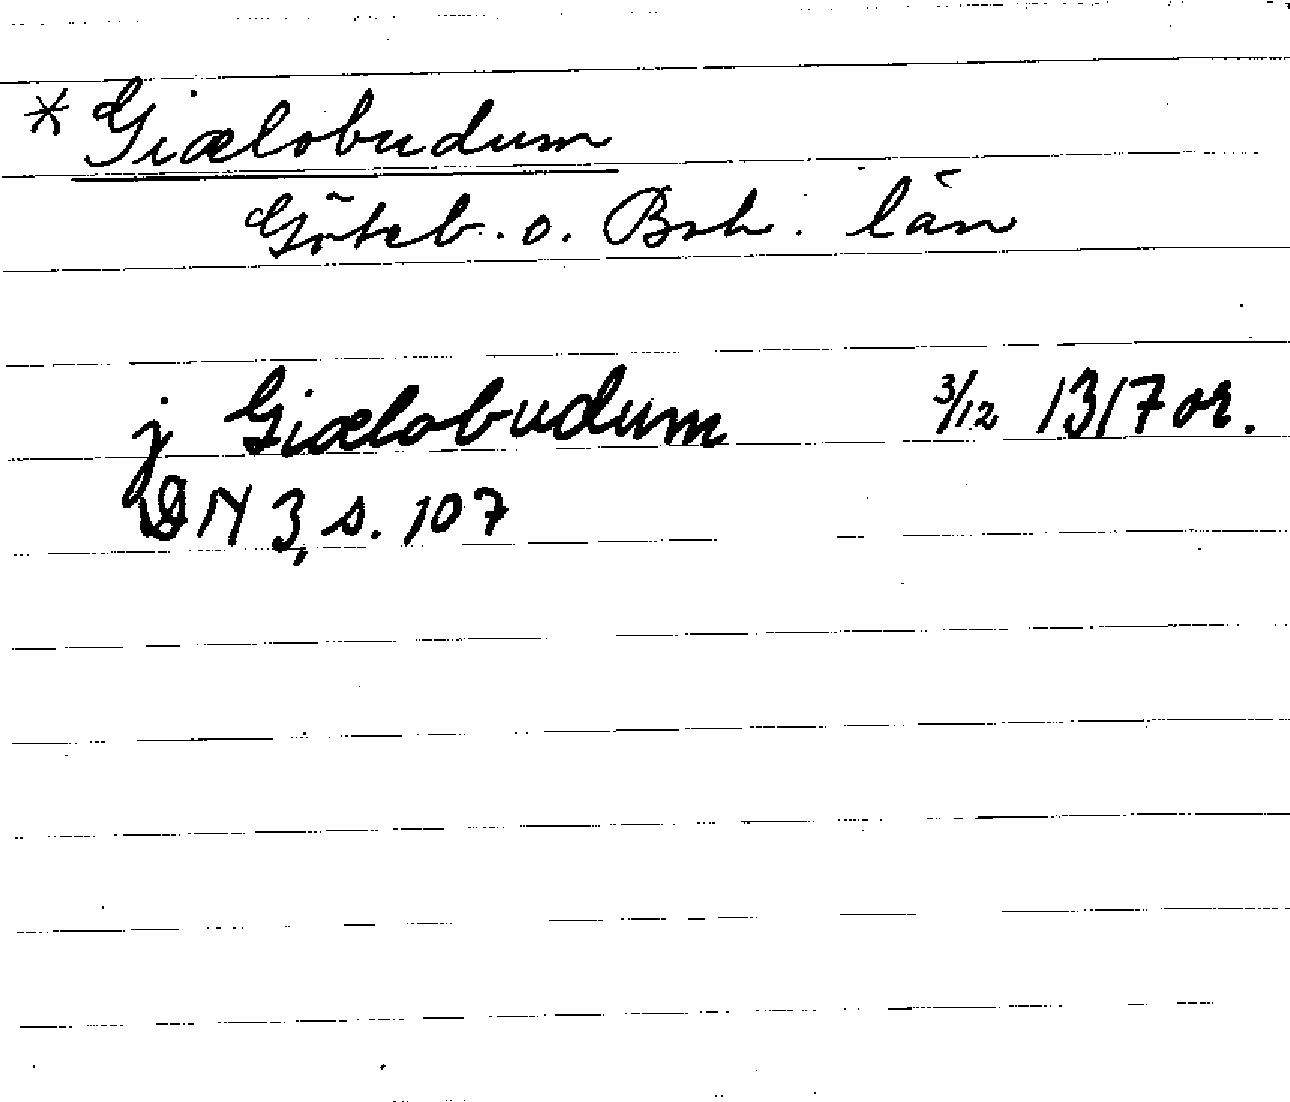 * Giælobudum
Göteb. o. Boh. län
j Giælobudum 3/12 1317 or.
DN 3, s. 107